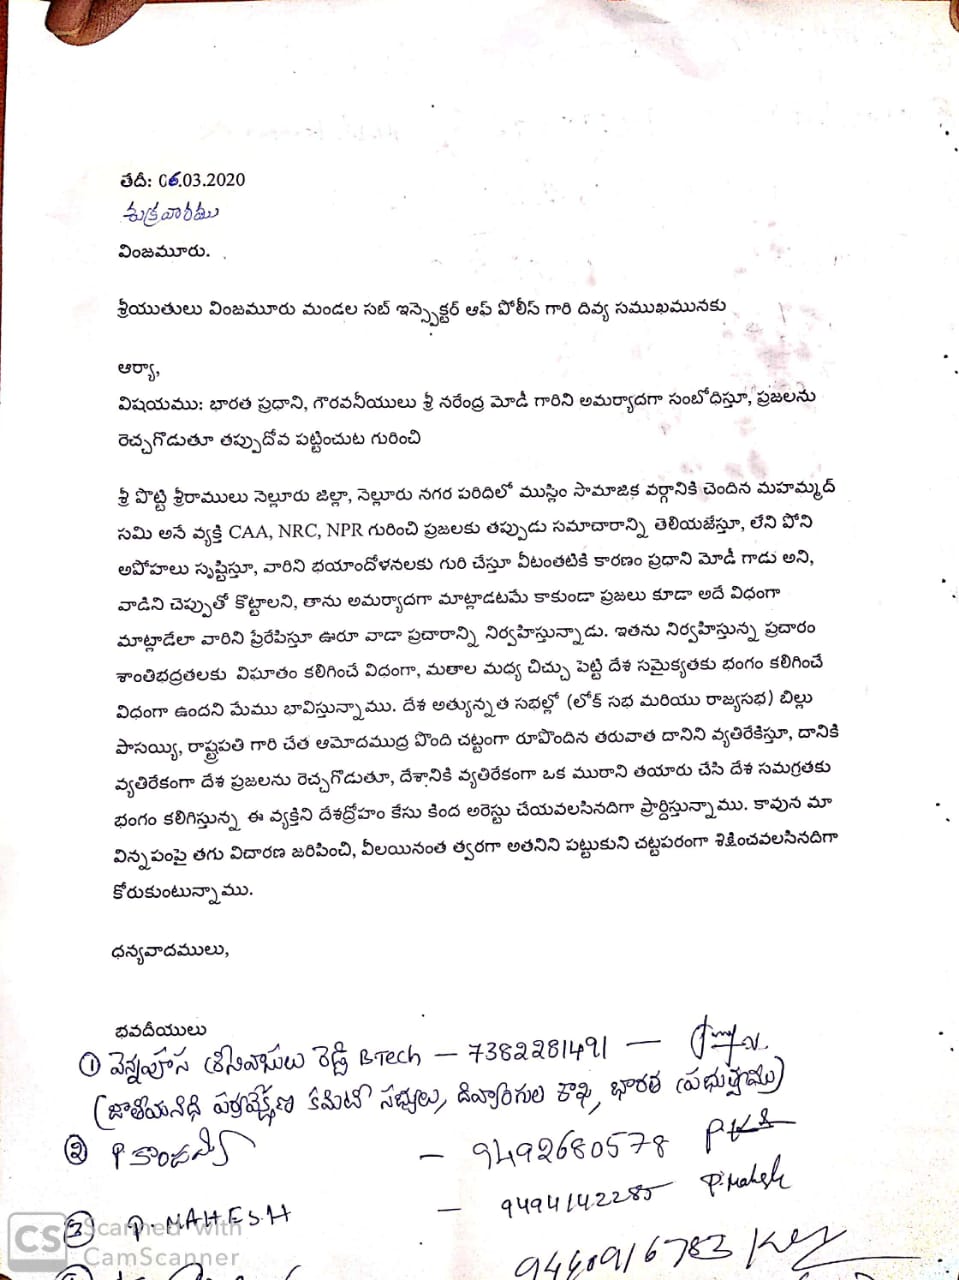 తేదీ: 06.03.2020
శుక్రవారము
వింజమూరు.
శ్రీయుతులు వింజమూరు మండల సబ్ ఇన్స్పెక్టర్ ఆఫ్ పోలీస్ గారి దివ్య సముఖమునకు
ఆర్యా,
విషయము: భారత ప్రధాని, గౌరవనీయులు శ్రీ నరేంద్ర మోడీ గారిని అమర్యాదగా సంబోధిస్తూ, ప్రజలను
రెచ్చగొడుతూ తప్పుదోవ పట్టించుట గురించి
శ్రీ పొట్టి శ్రీరాములు నెల్లూరు జిల్లా, నెల్లూరు నగర పరిదిలో ముస్లిం సామాజిక వర్గానికి చెందిన మహమ్మద్
సమి అనే వ్యక్తి CAA, NRC, NPR గురించి ప్రజలకు తప్పుడు సమాచారాన్ని తెలియజేస్తూ, లేని పోని
అపోహలు సృష్టిస్తూ, వారిని భయాందోళనలకు గురి చేస్తూ వీటంతటికి కారణం ప్రధాని మోడీ గాడు అని,
వాడిని చెప్పుతో కొట్టాలని, తాను అమర్యాదగా మాట్లాడటమే కాకుండా ప్రజలు కూడా అదే విధంగా
మాట్లాడేలా వారిని ప్రేరేపిస్తూ ఊరూ వాడా ప్రచారాన్ని నిర్వహిస్తున్నాడు. ఇతను నిర్వహిస్తున్న ప్రచారం
శాంతిభద్రతలకు విఘాతం కలిగించే విదంగా, మతాల మధ్య చిచ్చు పెట్టి దేశ సమైక్యతకు భంగం కలిగించే
విధంగా ఉందని మేము భావిస్తున్నాము. దేశ అత్యున్నత సభల్లో (లోక్ సభ మరియు రాజ్యసభ) బిల్లు
పాసయ్యి, రాష్ట్రపతి గారి చేత ఆమోదముద్ర పొంది చట్టంగా రూపొందిన తరువాత దానిని వ్యతిరేకిస్తూ, దానికి
వ్యతిరేకంగా దేశ ప్రజలను రెచ్చగొడుతూ, దేశానికి వ్యతిరేకంగా ఒక ముఠాని తయారు చేసి దేశ సమగ్రతకు
భంగం కలిగిస్తున్న ఈ వ్యక్తిని దేశద్రోహం కేసు కింద అరెస్టు చేయవలసినదిగా ప్రార్థిస్తున్నాము. కావున మా
విన్నపంపై తగు విచారణ జరిపించి, వీలయినంత త్వరగా అతనిని పట్టుకుని చట్టపరంగా శిక్షించవలసినదిగా
కోరుకుంటున్నాము.
ధన్యవాదములు,
భవదీయులు
① వెన్నపూస శ్రీనివాసులు రెడ్డి BTech – 7382281491 –
(జాతీయనిధి పర్యవేక్షణ కమిటీ సభ్యులు, దివ్యాంగుల శాఖ, భారత ప్రభుత్వము)
② – 9492680578
③ P. MAHESH – 9494142285 P. Mahesh
9440916783
CS Scanned with
CamScanner